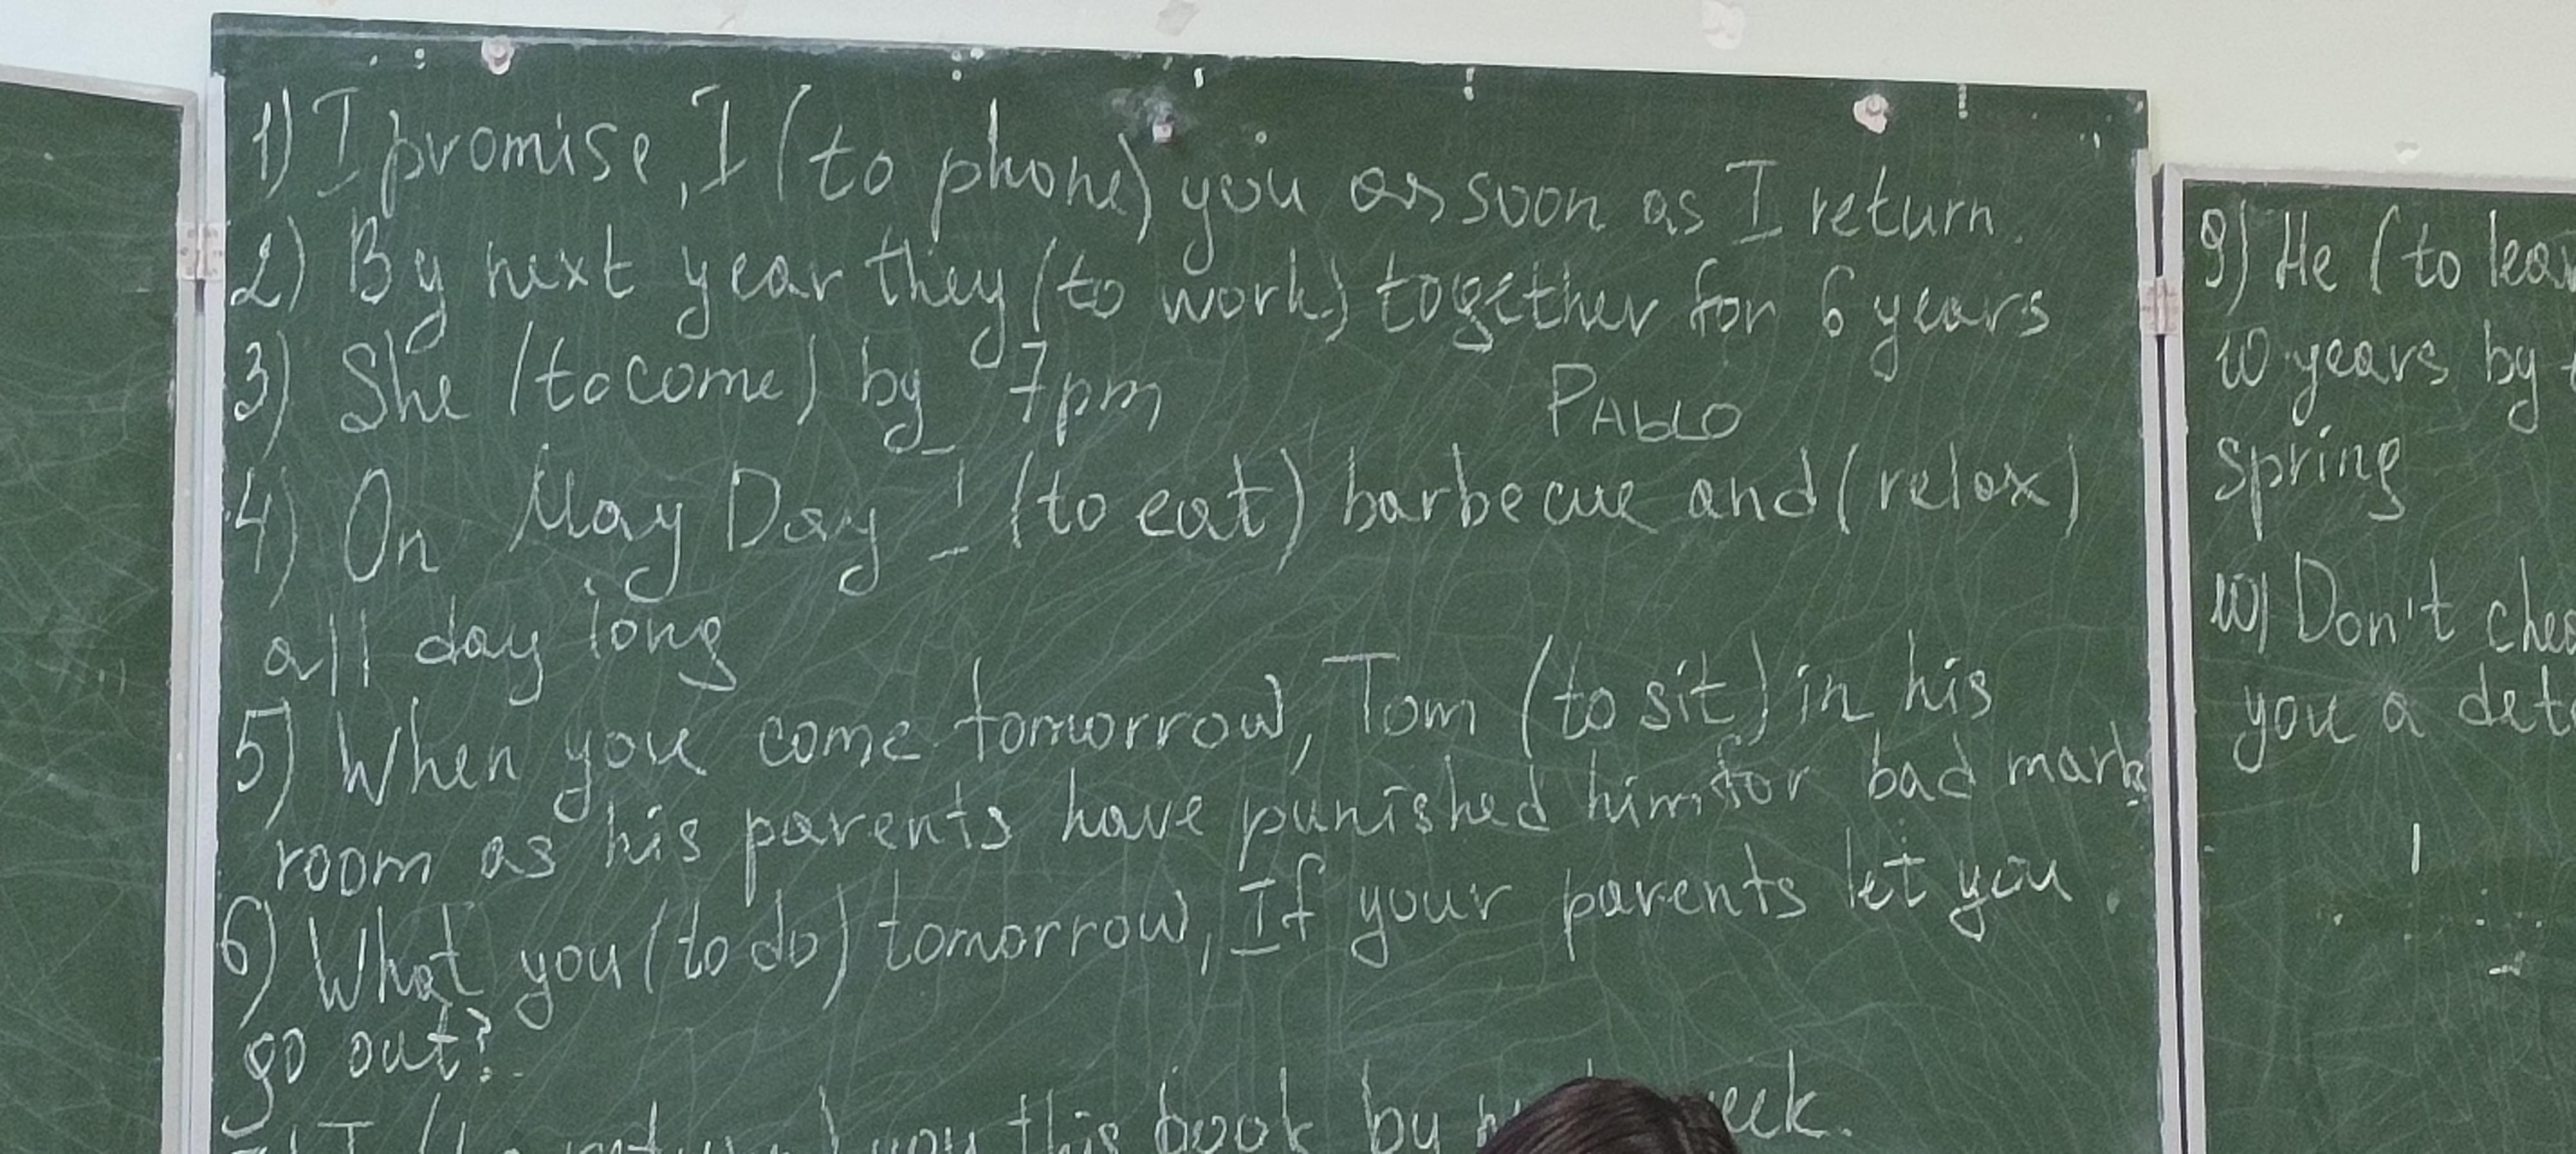 1) I promise, I (to phone) you as soon as I return.
2) By next year they (to work) together for 6 years
3) She (to come) by 7pm
PAbLO
4) On May Day I (to eat) barbecue and (relax)
all day long
5) When you come tomorrow, Tom (to sit) in his
room as his parents have punished him for bad marks
6) What you (to do) tomorrow, If your parents let you
go out?
7) I (to return) you this book by
9) He (to
10 years by
Spring
10) Don't
you a